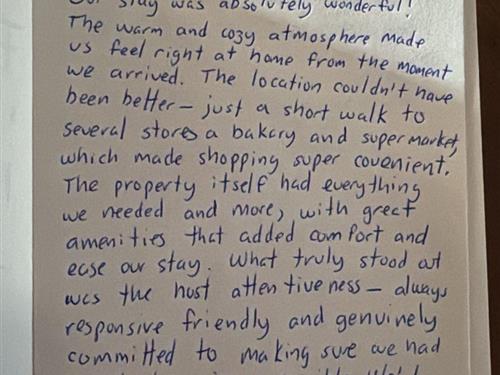 Our stay was absolutely wonderful!
The warm and cozy atmosphere made
us feel right at home from the moment
we arrived. The location couldn't have
been better – just a short walk to
several stores a bakery and supermarket,
which made shopping super covenient.
The property itself had everything
we needed and more, with great
amenities that added comfort and
ease our stay. What truly stood out
was the host attentiveness – always
responsive friendly and genuinely
committed to making sure we had